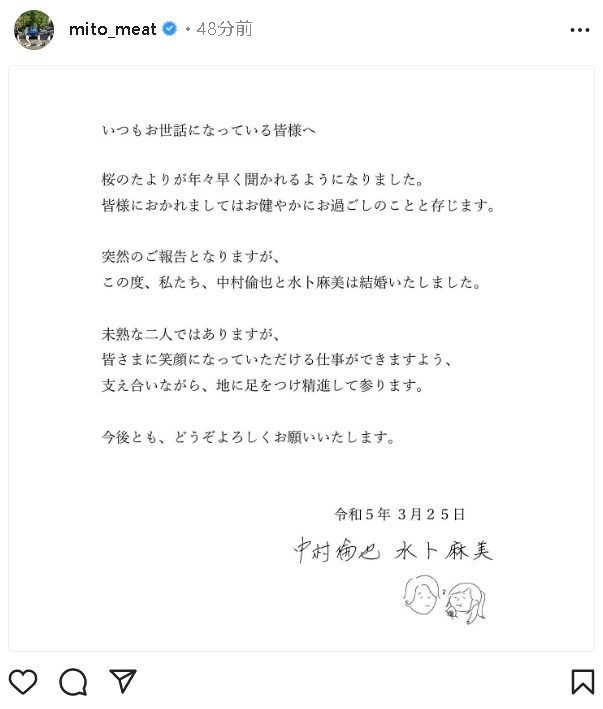 mito_meat • 48分前
いつもお世話になっている皆様へ
桜のたよりが年々早く聞かれるようになりました。
皆様におかれましてはお健やかにお過ごしのことと存じます。
突然のご報告となりますが、
この度、私たち、中村倫也と水卜麻美は結婚いたしました。
未熟な二人ではありますが、
皆さまに笑顔になっていただける仕事ができますよう、
支え合いながら、地に足をつけ精進して参ります。
今後とも、どうぞよろしくお願いいたします。
令和５年 ３月２５日
中村倫也 水卜麻美